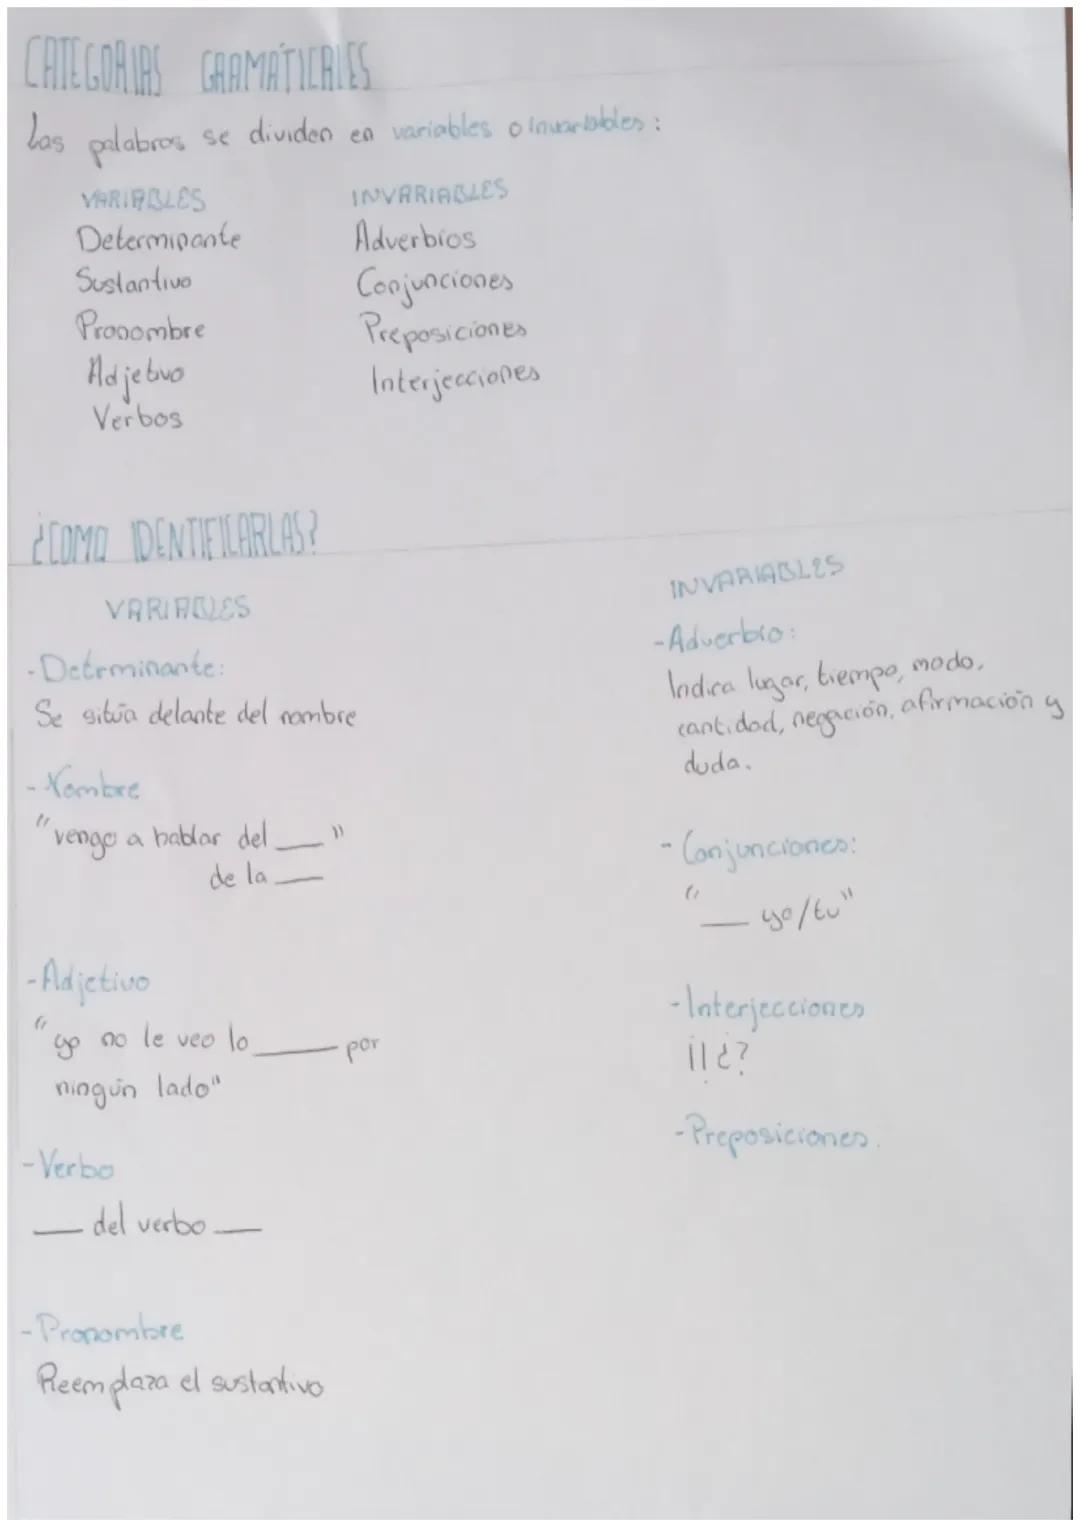 CATEGORIAS GRAMATICALES
Las palabras se dividen en variables o invariables:
VARIABLES
Determinante
Sustantivo
Pronombre
Adjetivo
Verbos
INVARIABLES
Adverbios
Conjunciones
Preposiciones
Interjecciones
¿COMO IDENTIFICARLAS?
VARIABLES
-Detrminante:
Se sitúa delante del nombre
-Nombre
"vengo a hablar del __"
de la __
-Adjetivo
"yo no le veo lo ____ por
ningún lado"
-Verbo
__ del verbo __
-Pronombre
Reemplaza el sustantivo
INVARIABLES
-Adverbio:
Indica lugar, tiempo, modo,
cantidad, negación, afirmación y
duda.
-Conjunciones:
"__ yo/tu"
-Interjecciones
¡! ¿?
-Preposiciones.